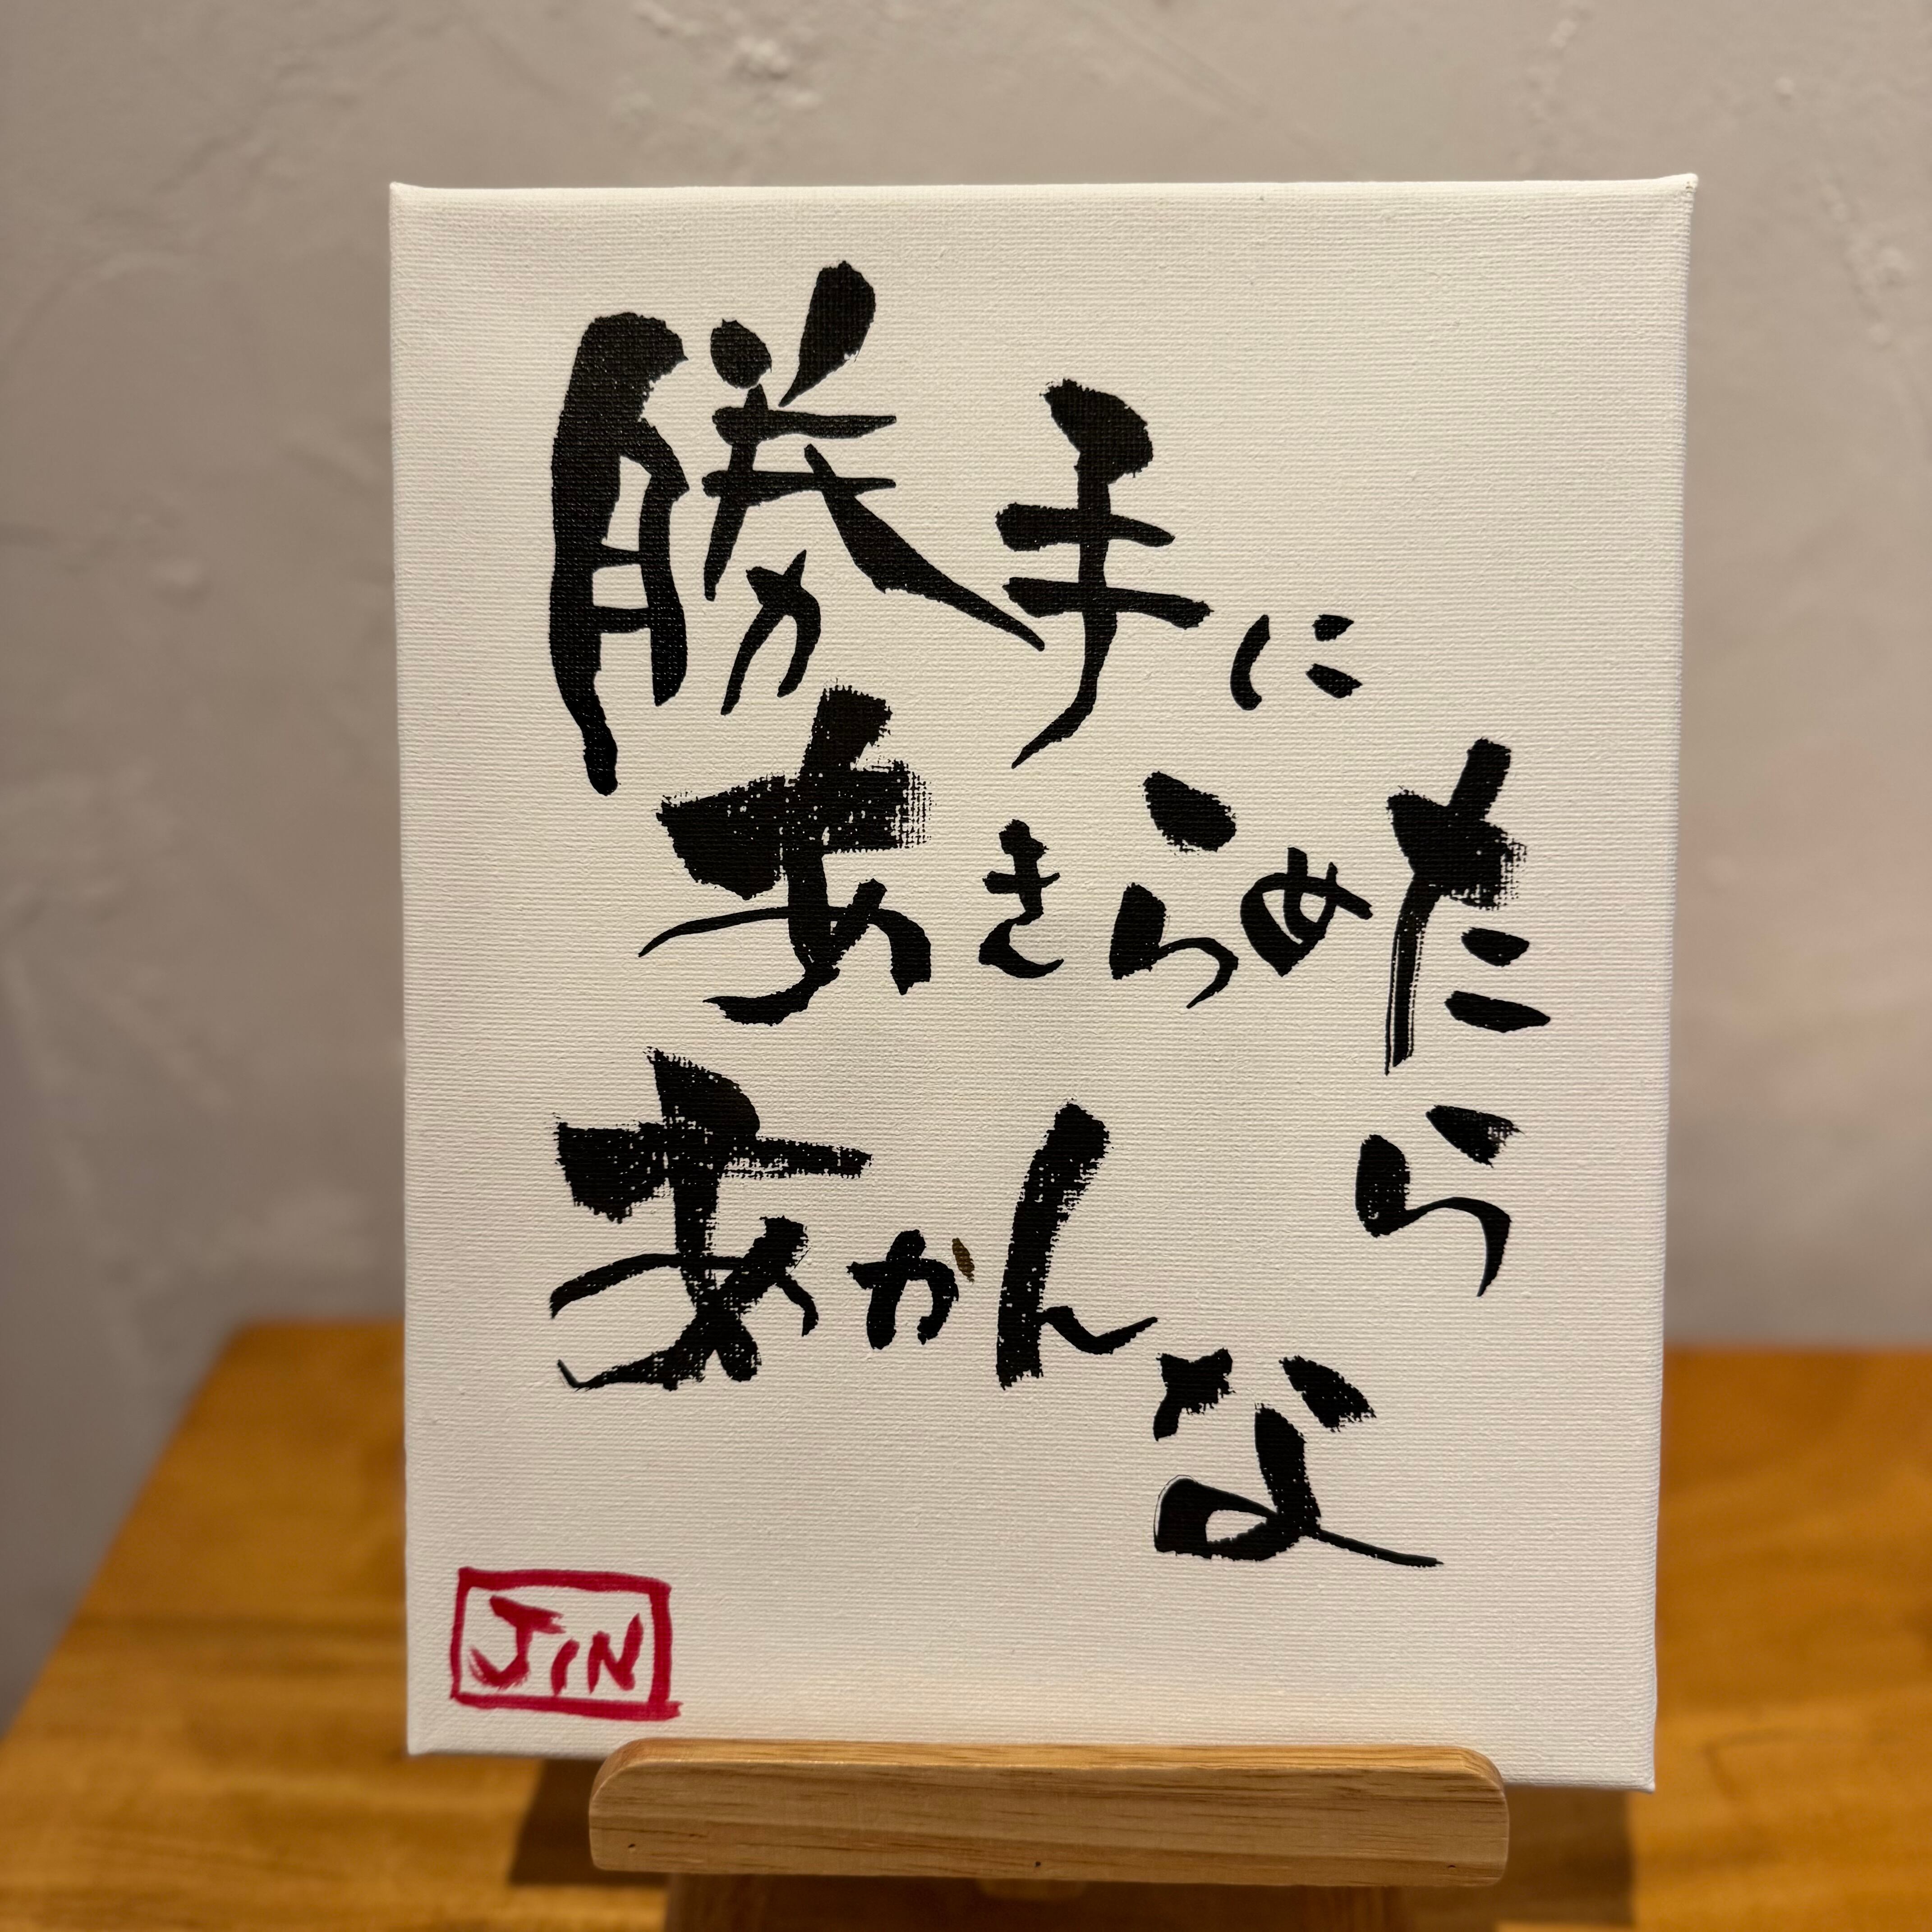 勝手に
あきらめたら
あかんな
JIN